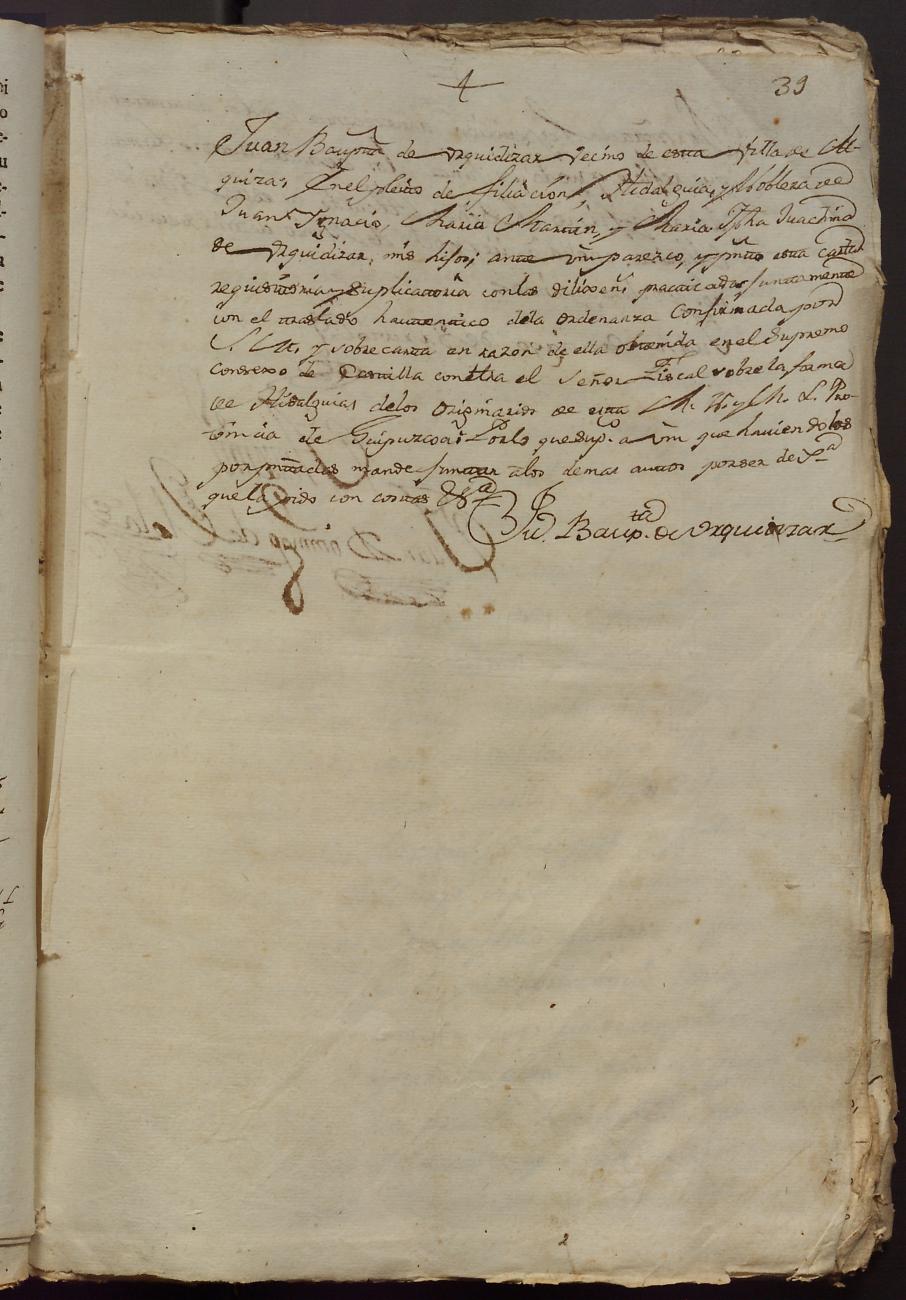 39
Juan Bauptta de Vrquidizar vecino de esta Villa de Al-
quiza, En el pleito de filiación, Hidalguia, y Nobleza de
Juan Ygnacio, Maria Martin, y Maria Jpha Juachina
de Vrquidizar, mis hijos; ante Vm parezco, y pnto esta carta
requisitoria, y Suplicatoria con las diligens practicadas juntamente
con el traslado hauttentico dela ordenanza Confirmada por
S. M. y sobrecarta en razon de ella obtenida en el Supremo
Conssexo de Castilla conttra el Señor Fiscal sobre la forma
de Hidalguias delos originarios de esta M. N. y M. L. Pro-
vincia de Guipuzcoa: Por lo que supco a Vm que haviendolos
por pntados mande juntar alos demas autos por ser de Jª
que la pido con costas &ª
Jn Baup.ta de Vrquidizar
2